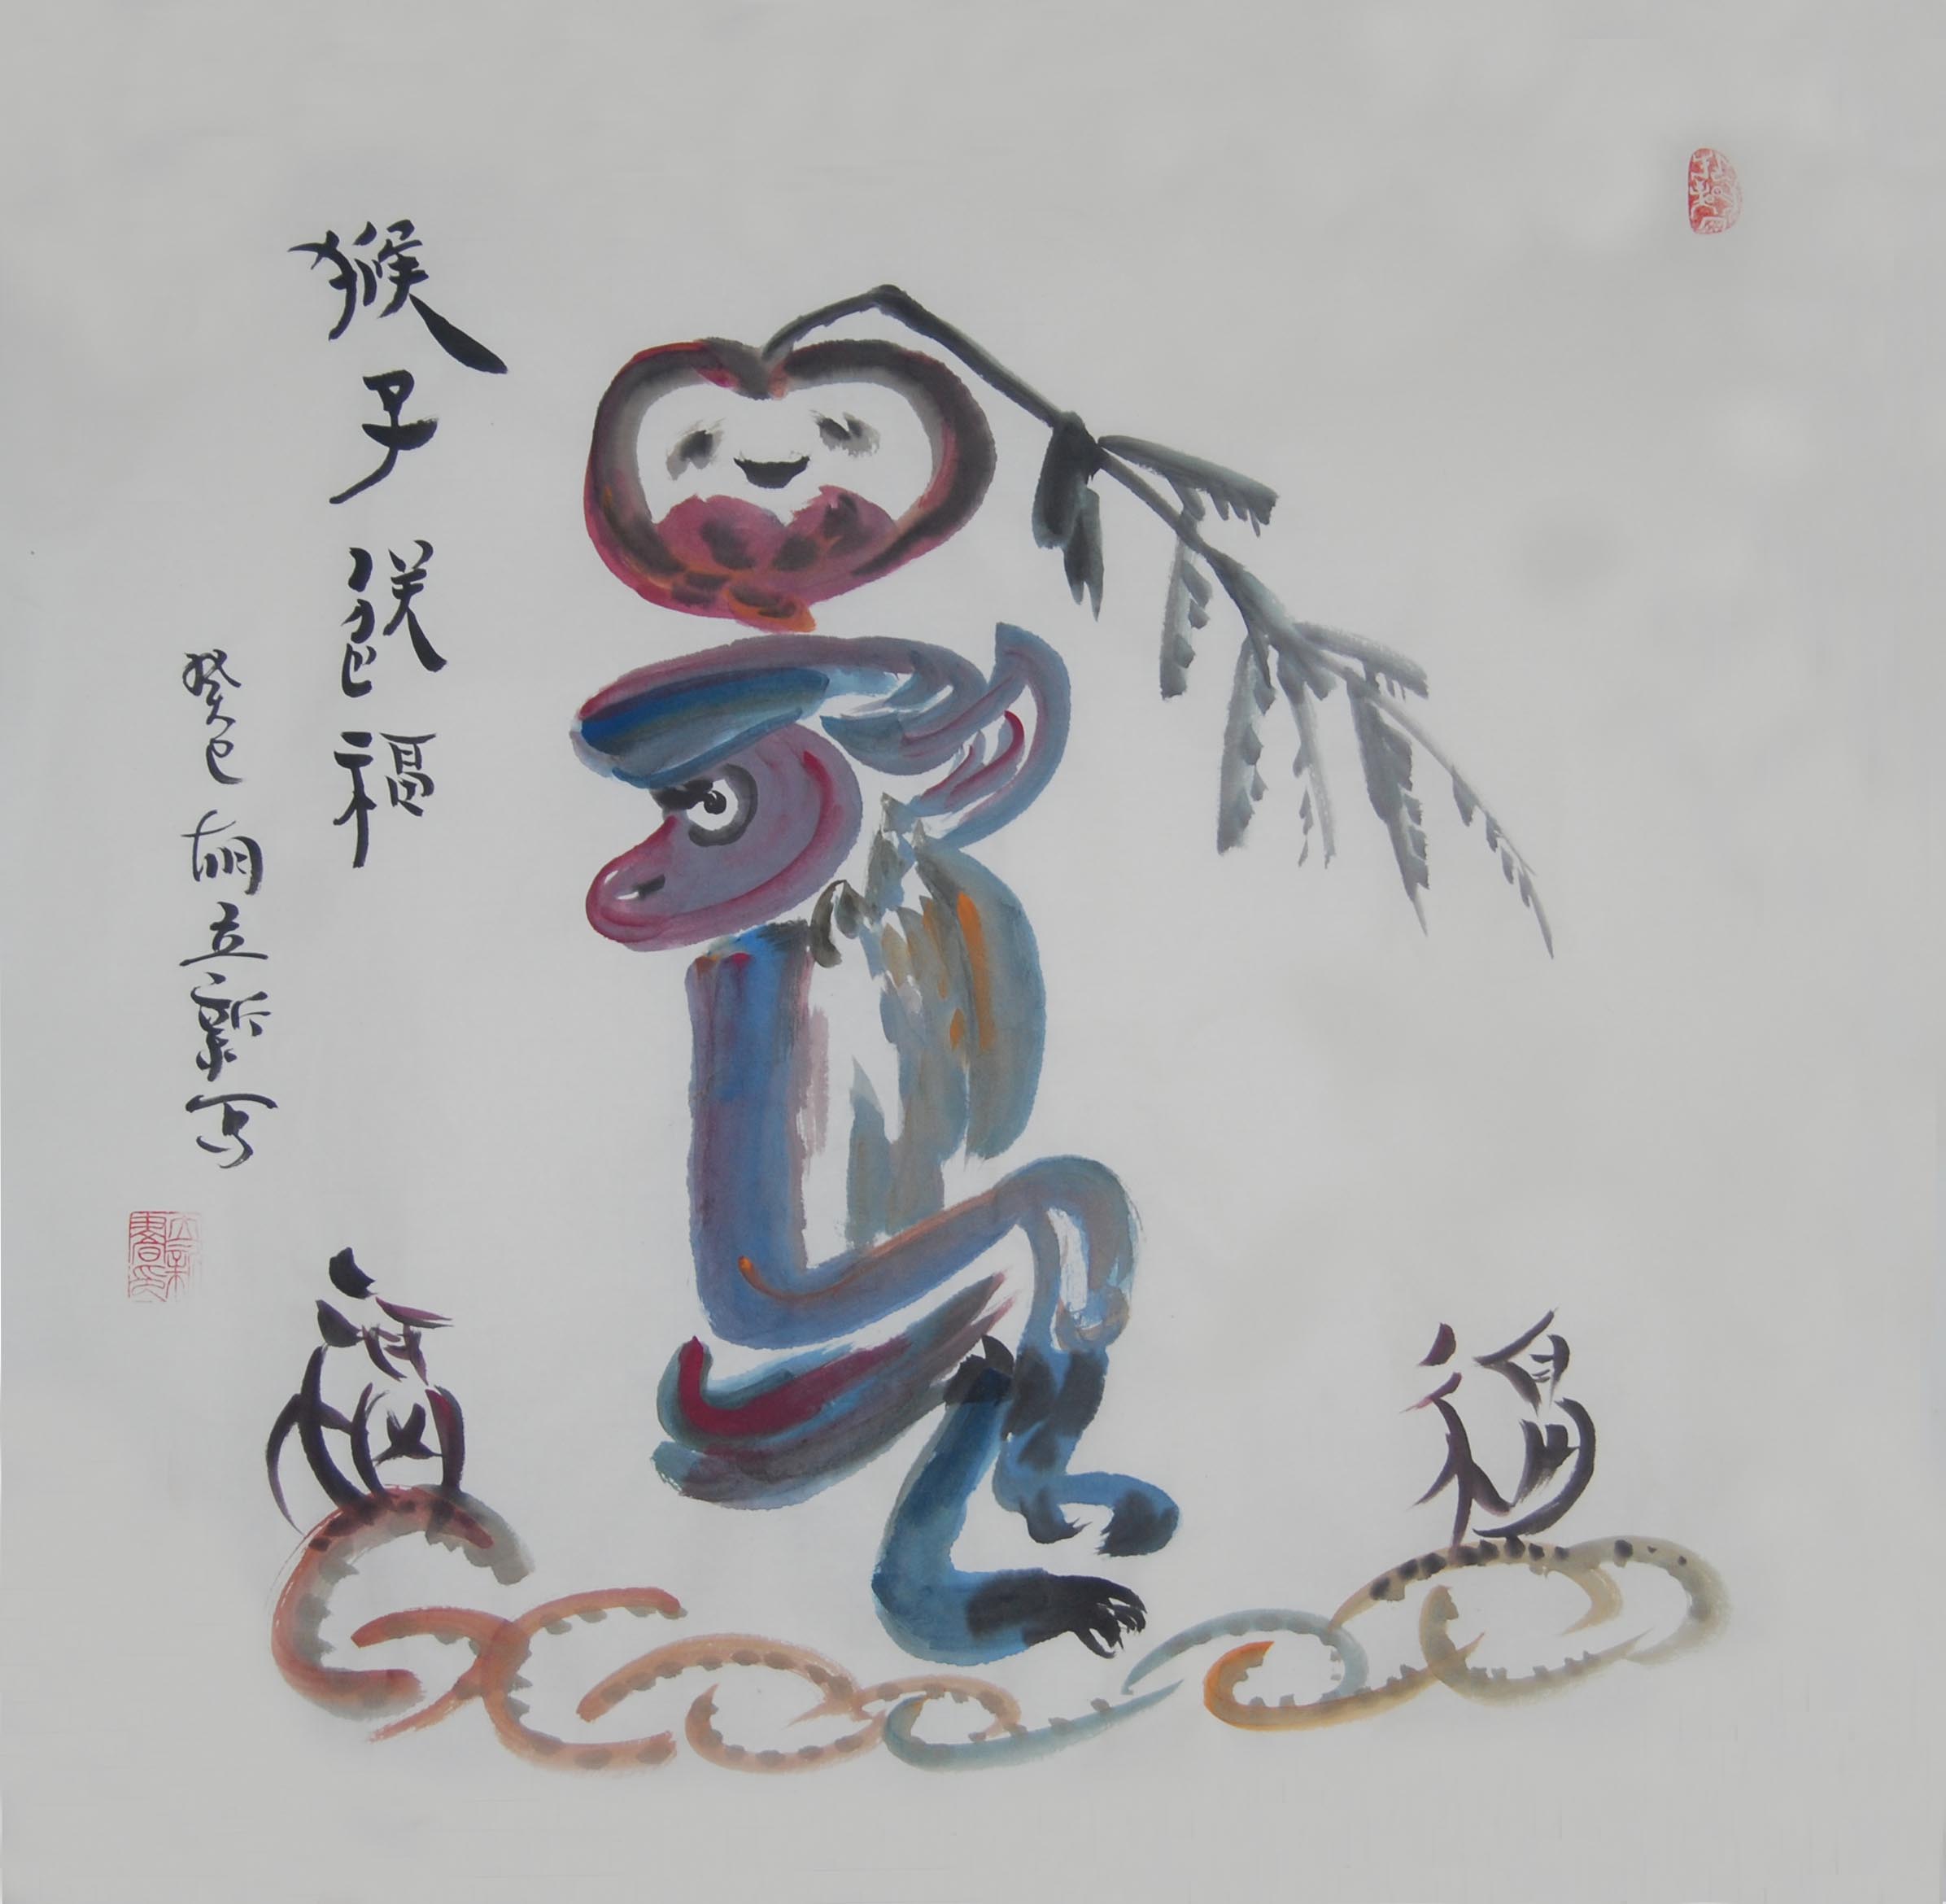 猴子送福
癸巳胡立新写
福
福